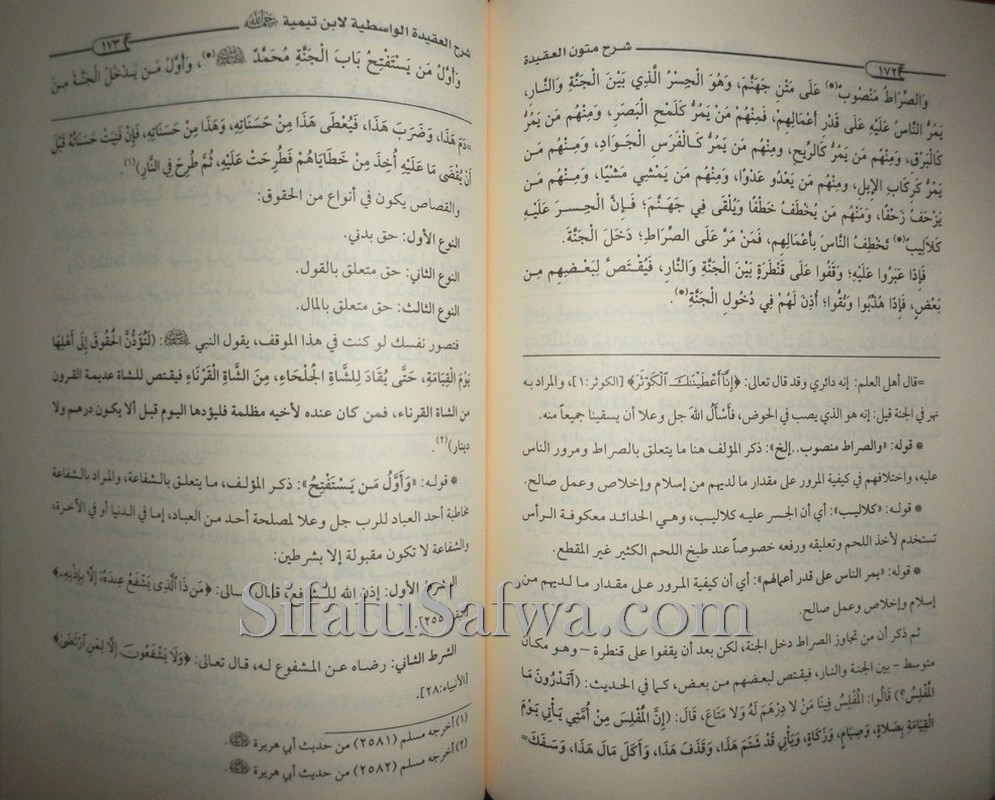 شرح متون العقيدة
١٧٢
وَالصِّرَاطُ مَنْصُوبٌ(*) عَلَى مَتْنِ جَهَنَّمَ، وَهُوَ الْجِسْرُ الَّذِي بَيْنَ الْجَنَّةِ وَالنَّارِ،
يَمُرُّ النَّاسُ عَلَيْهِ عَلَى قَدْرِ أَعْمَالِهِم، فَمِنْهُمْ مَنْ يَمُرُّ كَلَمْحِ الْبَصَرِ، وَمِنْهُم مَن يَمُرُّ
كَالْبَرْقِ، وَمِنْهُم مَن يَمُرُّ كَالرِّيحِ، ومِنْهُم مَن يَمُرُّ كَالْفَرَسِ الْجَوَادِ، وَمِنْهُم مَن
يَمُرُّ كَرِكَابِ الإِبِلِ، ومِنْهُم مَن يَعْدُو عَدْوًا، وَمِنْهُم مَن يَمْشِي مَشْيًا، وَمِنْهُم مَن
يَزْحَفُ زَحْفًا، وَمَنْهُم مَن يُخْطَفُ خَطْفًا وَيُلْقَى فِي جَهَنَّمَ؛ فَإِنَّ الْجِسرَ عَلَيْهِ
كَلاَلِيبُ(*) تَخْطِفُ النَّاسَ بِأَعْمَالِهِم، فَمَنْ مَرَّ عَلَى الصِّرَاطِ؛ دَخَلَ الْجَنَّةَ.
فَإِذَا عَبَرُوا عَلَيْهِ؛ وَقَفُوا عَلَى قَنْطَرَةٍ بَيْنَ الْجَنَّةِ وَالنَّارِ، فَيُقْتَصُّ لِبَعْضِهِم مِن
بَعْضٍ، فَإِذَا هُذِّبُوا وَنُقُّوا؛ أُذِنَ لَهُمْ فِي دُخُولِ الْجَنَّةِ(*).
=قال أهل العلم: إنه دائري وقد قال تعالى: ﴿إِنَّا أَعْطَيْنَاكَ الْكَوْثَرَ﴾ [الكوثر:١]، والمراد به
نهر في الجنة قيل: إنه هو الذي يصب في الحوض، فأسأل الله جل وعلا أن يسقينا جميعاً منه.
* قوله: «والصراط منصوب..إلخ»: ذكر المؤلف هنا ما يتعلق بالصراط ومرور الناس
عليه، واختلافهم في كيفية المرور على مقدار ما لديهم من إسلام وإخلاص وعمل صالح.
* قوله: «كلاليب»: أي أن الجسر عليه كلاليب، وهي الحدائد معكوفة الرأس
تستخدم لأخذ اللحم وتعليقه ورفعه خصوصاً عند طبخ اللحم الكثير غير المقطع.
* قوله: «يمر الناس على قدر أعمالهم»: أي أن كيفية المرور على مقدار ما لديهم من
إسلام وإخلاص وعمل صالح.
ثم ذكر أن من تجاوز الصراط دخل الجنة، لكن بعد أن يقفوا على قنطرة – وهو مكان
متوسط – بين الجنة والنار، فيقتص لبعضهم من بعض، كما في الحديث: (أَتَدْرُونَ مَا
المُفْلِسُ؟) قَالُوا: المُفْلِسُ فِينَا مَنْ لا دِرْهَمَ لَهُ وَلا مَتَاعَ، قَالَ: (إِنَّ المُفْلِسَ مِنْ أُمَّتِي يَأْتِي يَوْمَ
القِيَامَةِ بِصَلاةٍ، وَصِيَامٍ، وَزَكَاةٍ، وَيَأْتِي قَدْ شَتَمَ هَذَا، وَقَذَفَ هَذَا، وَأَكَلَ مَالَ هَذَا، وَسَفَكَ=
شرح العقيدة الواسطية لابن تيمية رحمه الله
١٧٣
وَأَوَّلُ مَن يَسْتَفْتِحُ بَابَ الْجَنَّةِ مُحَمَّدٌ ﷺ(*)، وَأَوَّلُ مَن يَدْخُلُ الْجَنَّةَ مِنَ
=دَمَ هَذَا، وَضَرَبَ هَذَا، فَيُعْطَى هَذَا مِنْ حَسَنَاتِهِ، وَهَذَا مِنْ حَسَنَاتِهِ، فَإِنْ فَنِيَتْ حَسَنَاتُهُ قَبْلَ
أَنْ يُقْضَى مَا عَلَيْهِ أُخِذَ مِنْ خَطَايَاهُمْ فَطُرِحَتْ عَلَيْهِ، ثُمَّ طُرِحَ فِي النَّارِ)(١).
والقصاص يكون في أنواع من الحقوق:
النوع الأول: حق بدني.
النوع الثاني: حق متعلق بالقول.
النوع الثالث: حق متعلق بالمال.
فتصور نفسك لو كنت في هذا الموقف، يقول النبي ﷺ: (لَتُؤَدَّنَّ الحُقُوقَ إِلَى أَهْلِهَا
يَوْمَ القِيَامَةِ، حَتَّى يُقَادَ لِلشَّاةِ الجَلْحَاءِ، مِنَ الشَّاةِ القَرْنَاءِ فيقتص للشاة عديمة القرون
من الشاة القرناء، فمن كان عنده لأخيه مظلمة فليؤدها اليوم قبل ألا يكون درهم ولا
دينار)(٢).
* قوله: «وَأَوَّلُ مَن يَسْتَفْتِحُ»: ذكر المؤلف، ما يتعلق بالشفاعة، والمراد بالشفاعة
مخاطبة أحد العباد للرب جل وعلا لمصلحة أحد من العباد، إما في الدنيا أو في الآخرة،
والشفاعة لا تكون مقبولة إلا بشرطين:
الشرط الأول: إذن الله للشافع، قال تعالى: ﴿مَن ذَا الَّذِي يَشْفَعُ عِندَهُ إِلَّا بِإِذْنِهِ﴾
٢٥٥].
الشرط الثاني: رضاه عن المشفوع له، قال تعالى: ﴿وَلَا يَشْفَعُونَ إِلَّا لِمَنِ ارْتَضَى﴾
[الأنبياء:٢٨].
(١) أخرجه مسلم (٢٥٨١) من حديث أبي هريرة رضي الله عنه.
(٢) أخرجه مسلم (٢٥٨٢) من حديث أبي هريرة رضي الله عنه.
SifatuSafwa.com